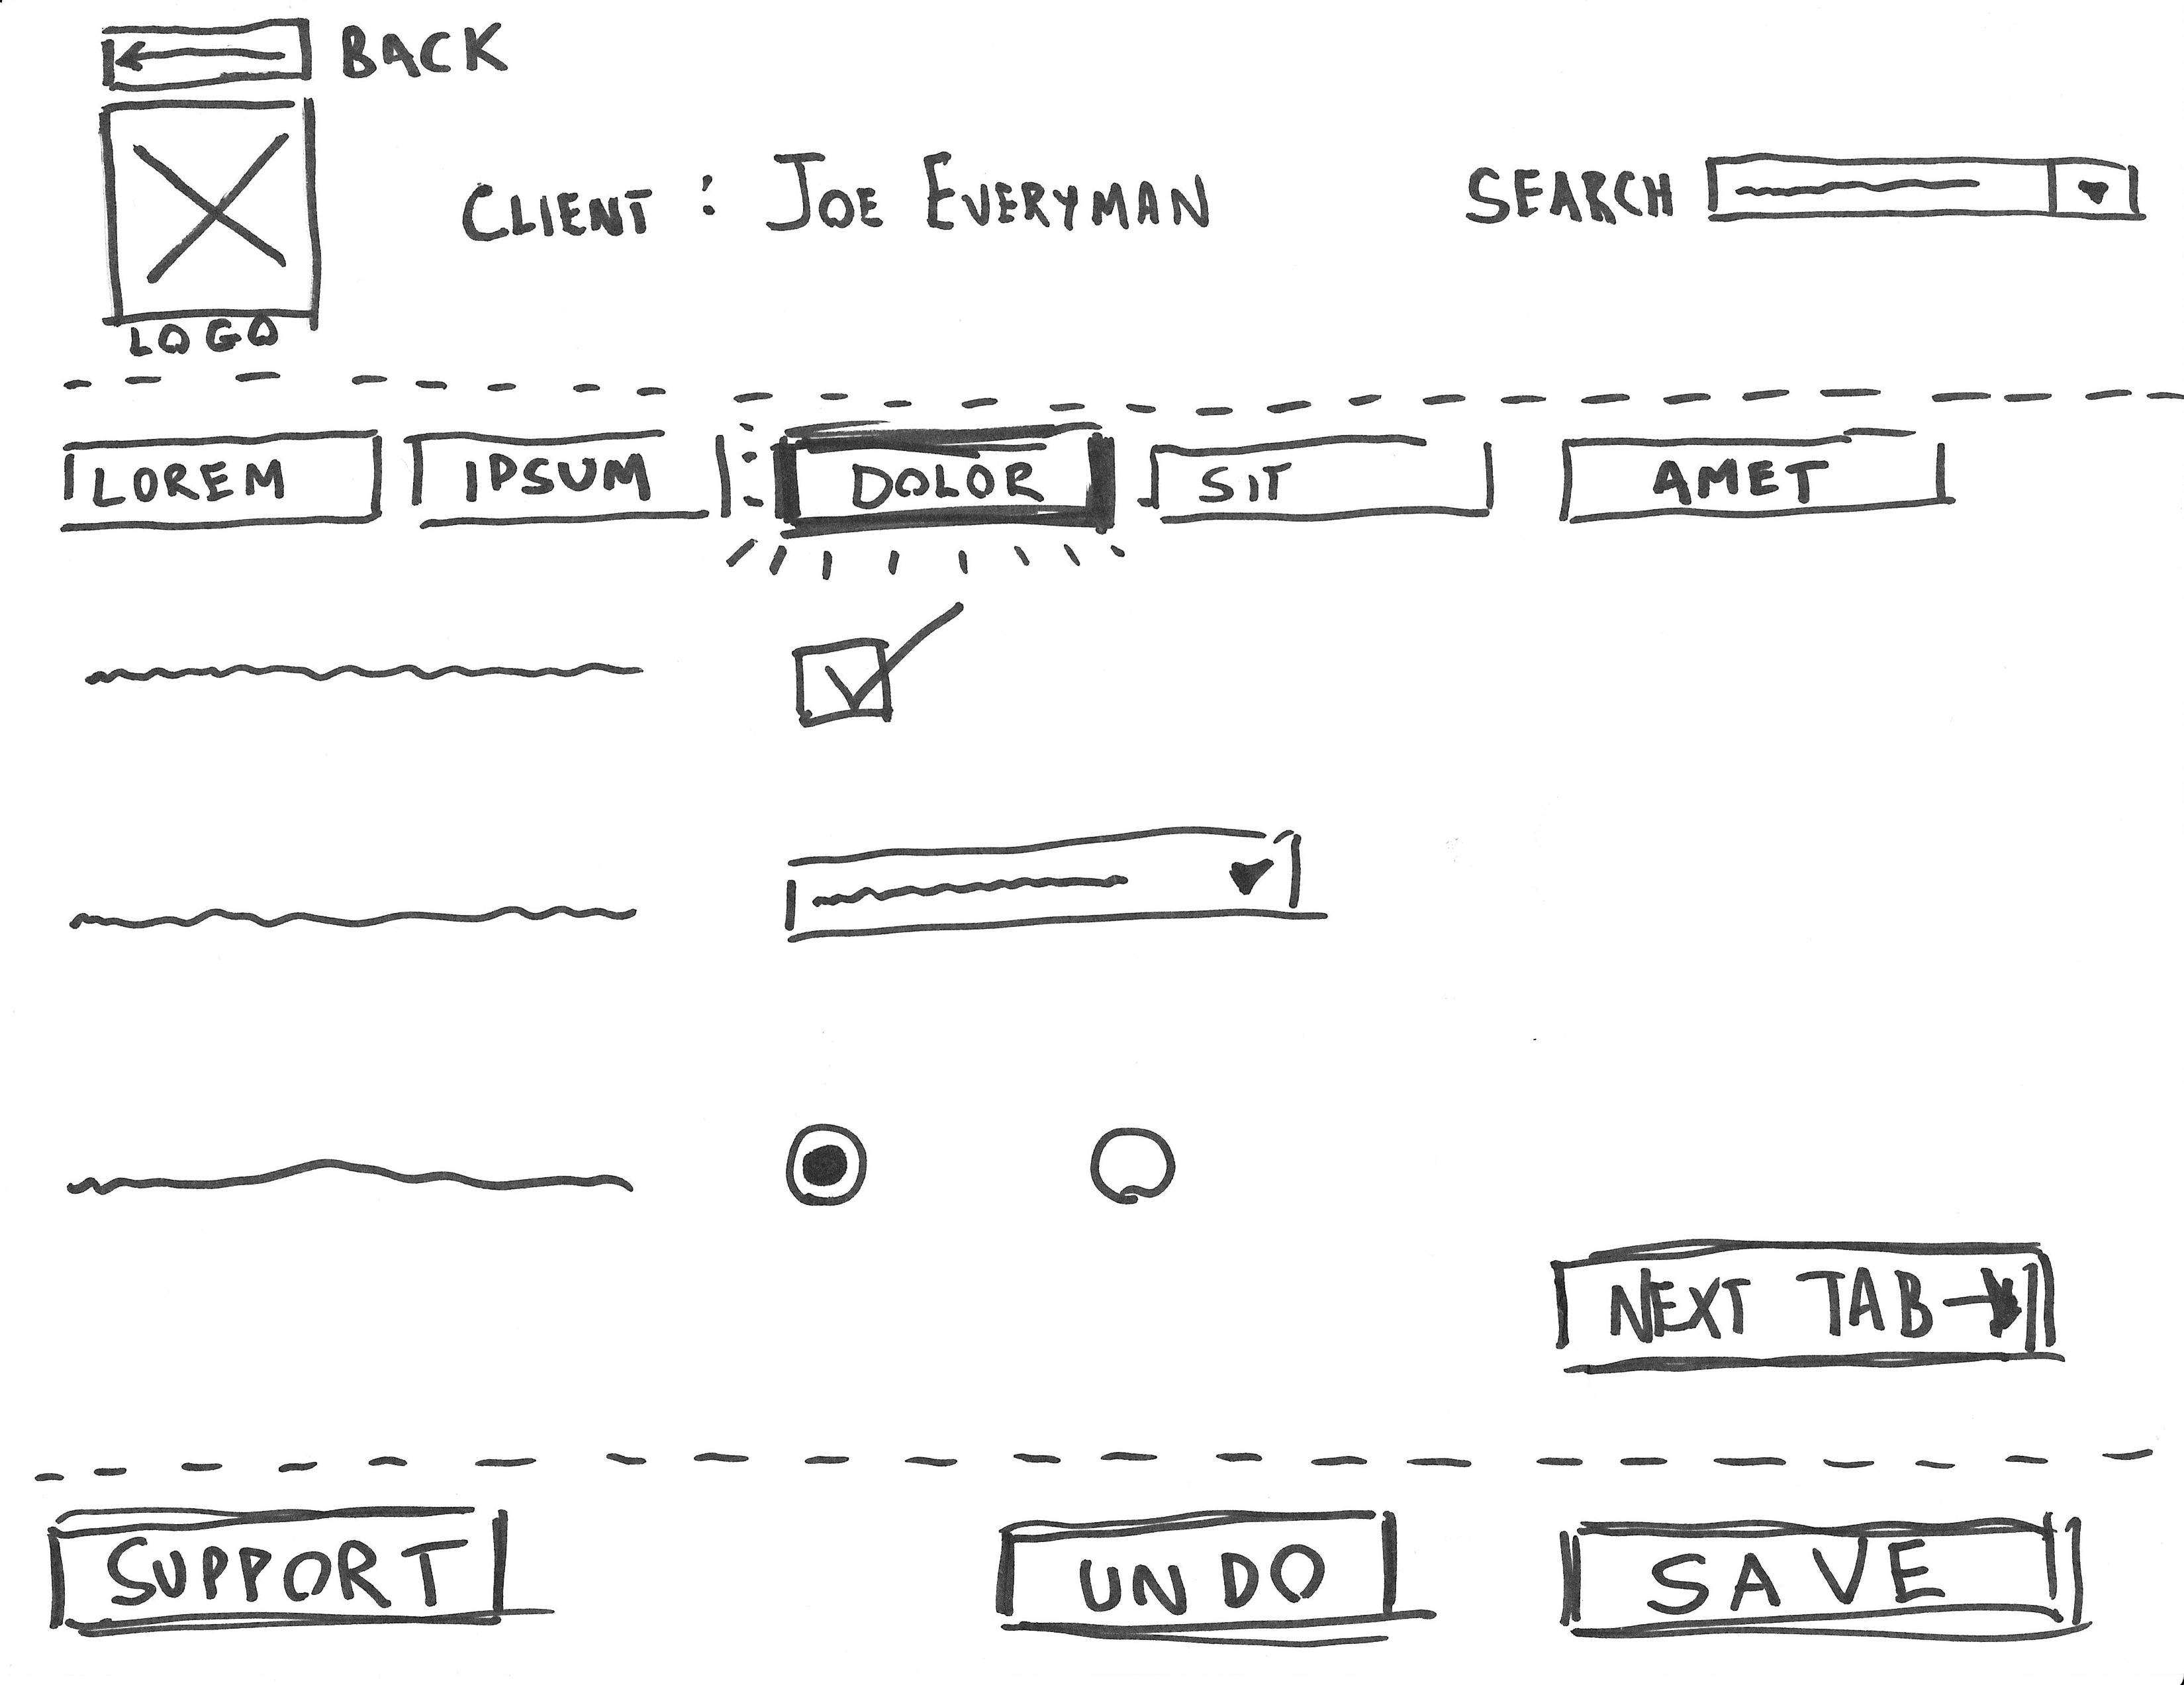 BACK
CLIENT : JOE EVERYMAN
SEARCH
LOGO
LOREM
IPSUM
DOLOR
SIT
AMET
NEXT TAB
SUPPORT
UNDO
SAVE